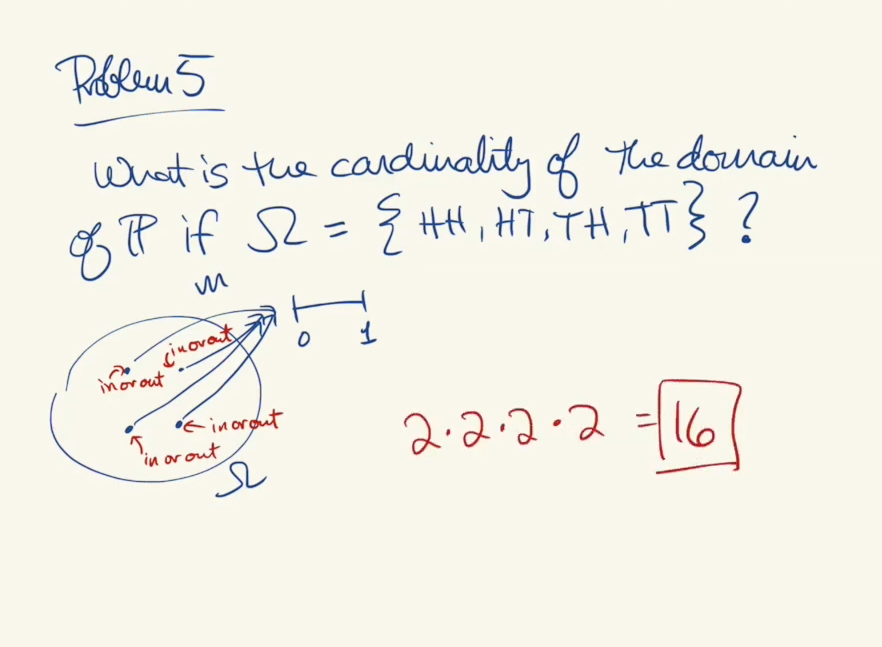 Problem 5
What is the cardinality of the domain
of ℙ if Ω = { HH, HT, TH, TT } ?
m
0 1
in or out
in or out
in or out
in or out
Ω
2 · 2 · 2 · 2 = 16